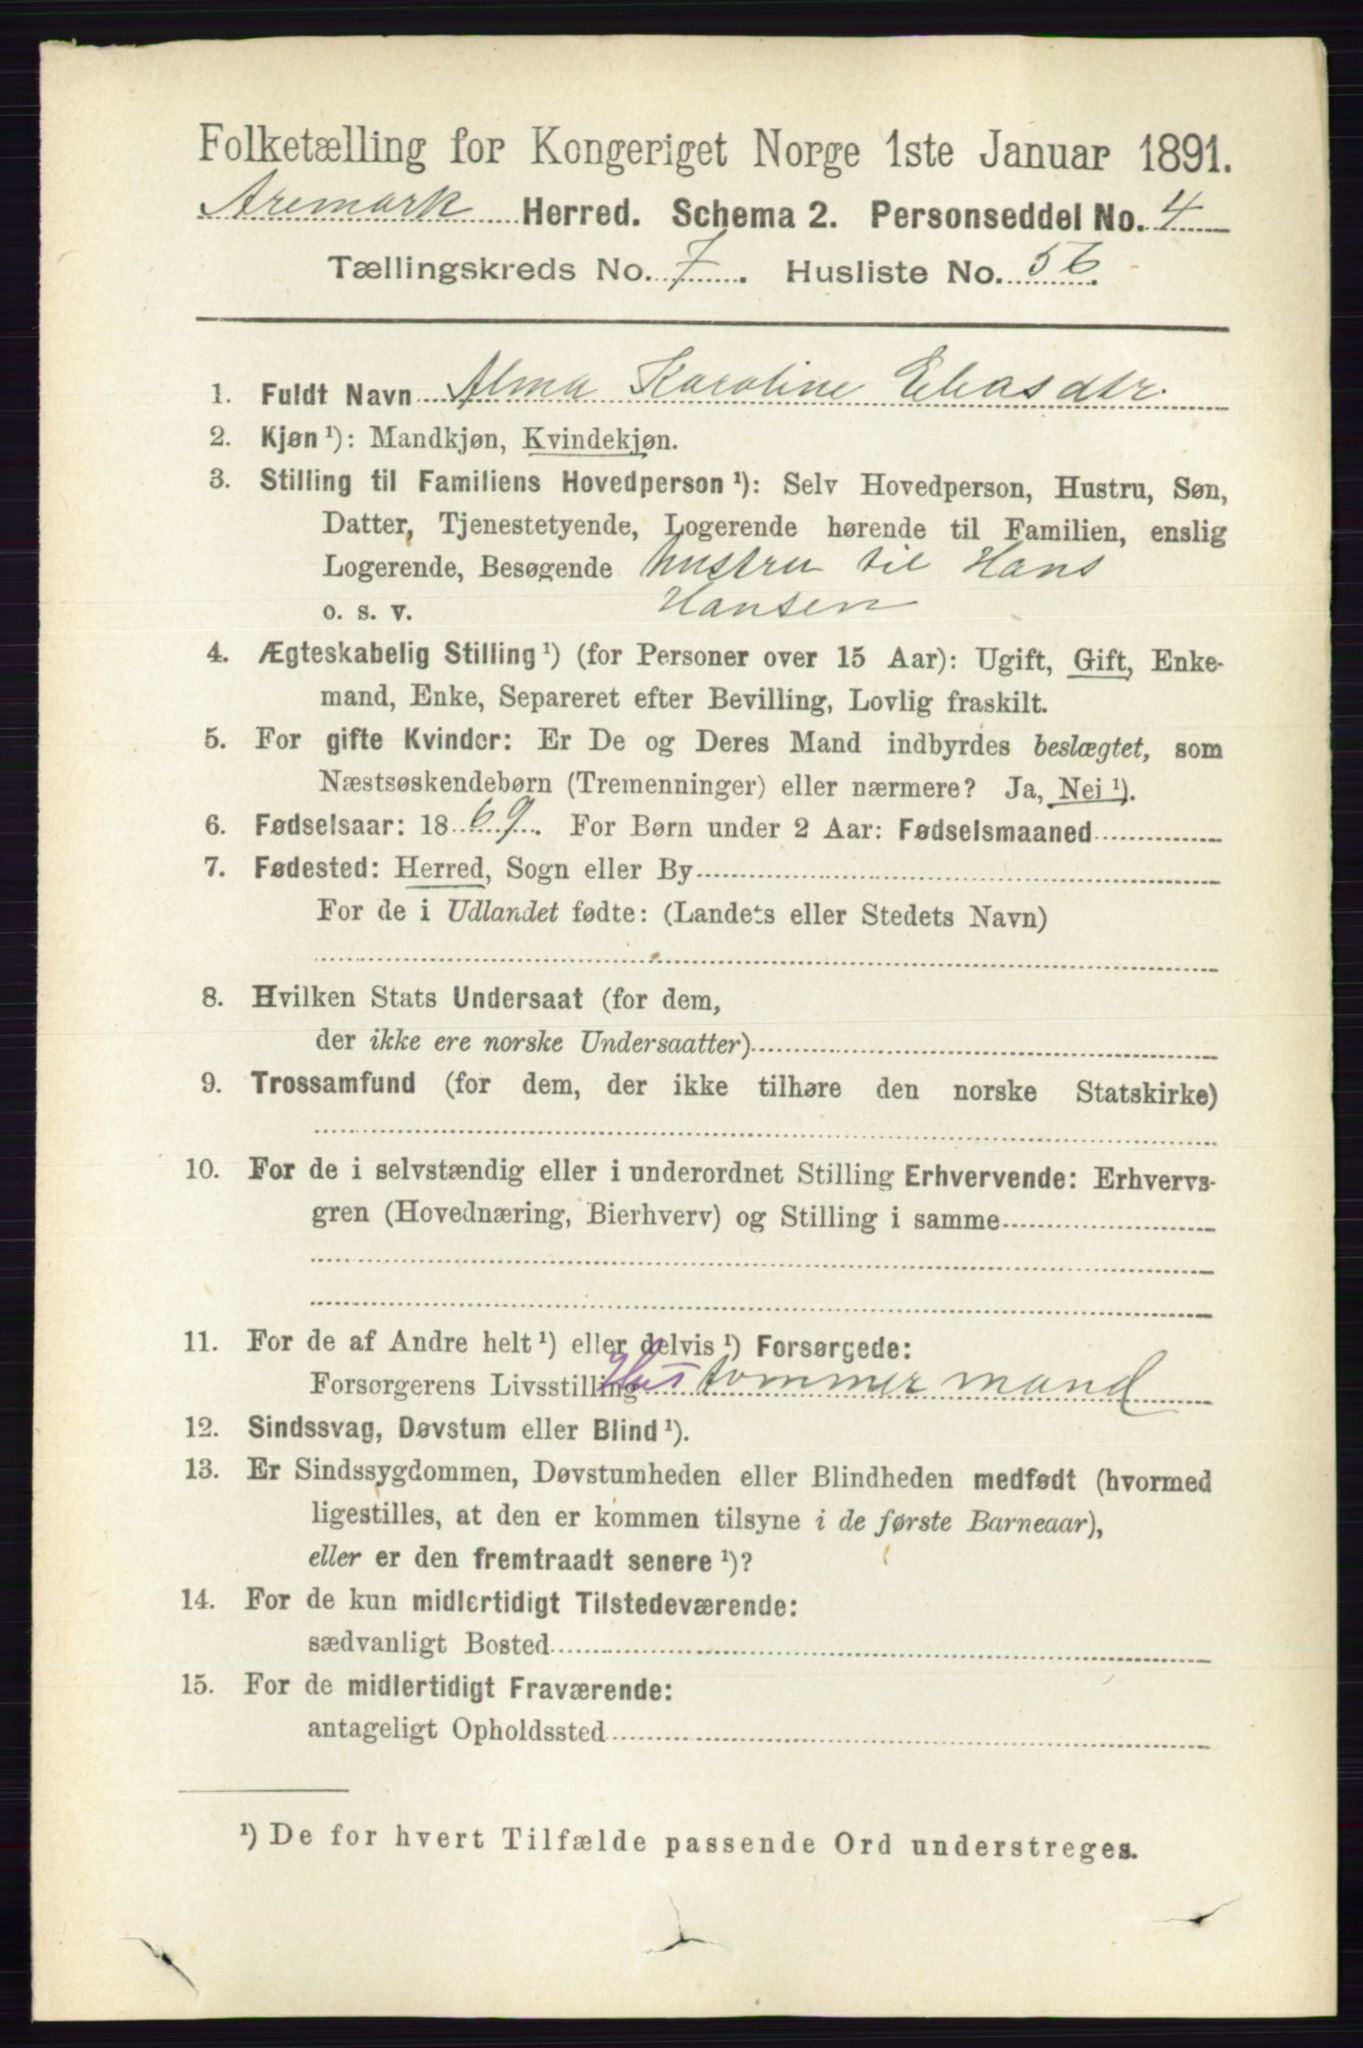 Folketælling for Kongeriget Norge 1ste Januar 1891.
Aremark Herred. Schema 2. Personseddel No. 4
Tællingskreds No. 7. Husliste No. 56.
1. Fuldt Navn Alma Karoline Eliasdtr.
2. Kjøn ¹): Mandkjøn, Kvindekjøn.
3. Stilling til Familiens Hovedperson ¹): Selv Hovedperson, Hustru, Søn,
Datter, Tjenestetyende, Logerende hørende til Familien, enslig
Logerende, Besøgende hustru til Hans
o. s. v. Hansen
4. Ægteskabelig Stilling ¹) (for Personer over 15 Aar): Ugift, Gift, Enke-
mand, Enke, Separeret efter Bevilling, Lovlig fraskilt.
5. For gifte Kvinder: Er De og Deres Mand indbyrdes beslægtet, som
Næstsøskendebørn (Tremenninger) eller nærmere? Ja, Nei ¹).
6. Fødselsaar: 1869. For Børn under 2 Aar: Fødselsmaaned
7. Fødested: Herred, Sogn eller By
For de i Udlandet fødte: (Landets eller Stedets Navn)
8. Hvilken Stats Undersaat (for dem,
der ikke ere norske Undersaatter)
9. Trossamfund (for dem, der ikke tilhøre den norske Statskirke)
10. For de i selvstændig eller i underordnet Stilling Erhvervende: Erhvervs-
gren (Hovednæring, Bierhverv) og Stilling i samme
11. For de af Andre helt ¹) eller delvis ¹) Forsørgede:
Forsørgerens Livsstilling Hustømmermand
12. Sindssvag, Døvstum eller Blind ¹).
13. Er Sindssygdommen, Døvstumheden eller Blindheden medfødt (hvormed
ligestilles, at den er kommen tilsyne i de første Barneaar),
eller er den fremtraadt senere ¹)?
14. For de kun midlertidigt Tilstedeværende:
sædvanligt Bosted
15. For de midlertidigt Fraværende:
antageligt Opholdssted
¹) De for hvert Tilfælde passende Ord understreges.